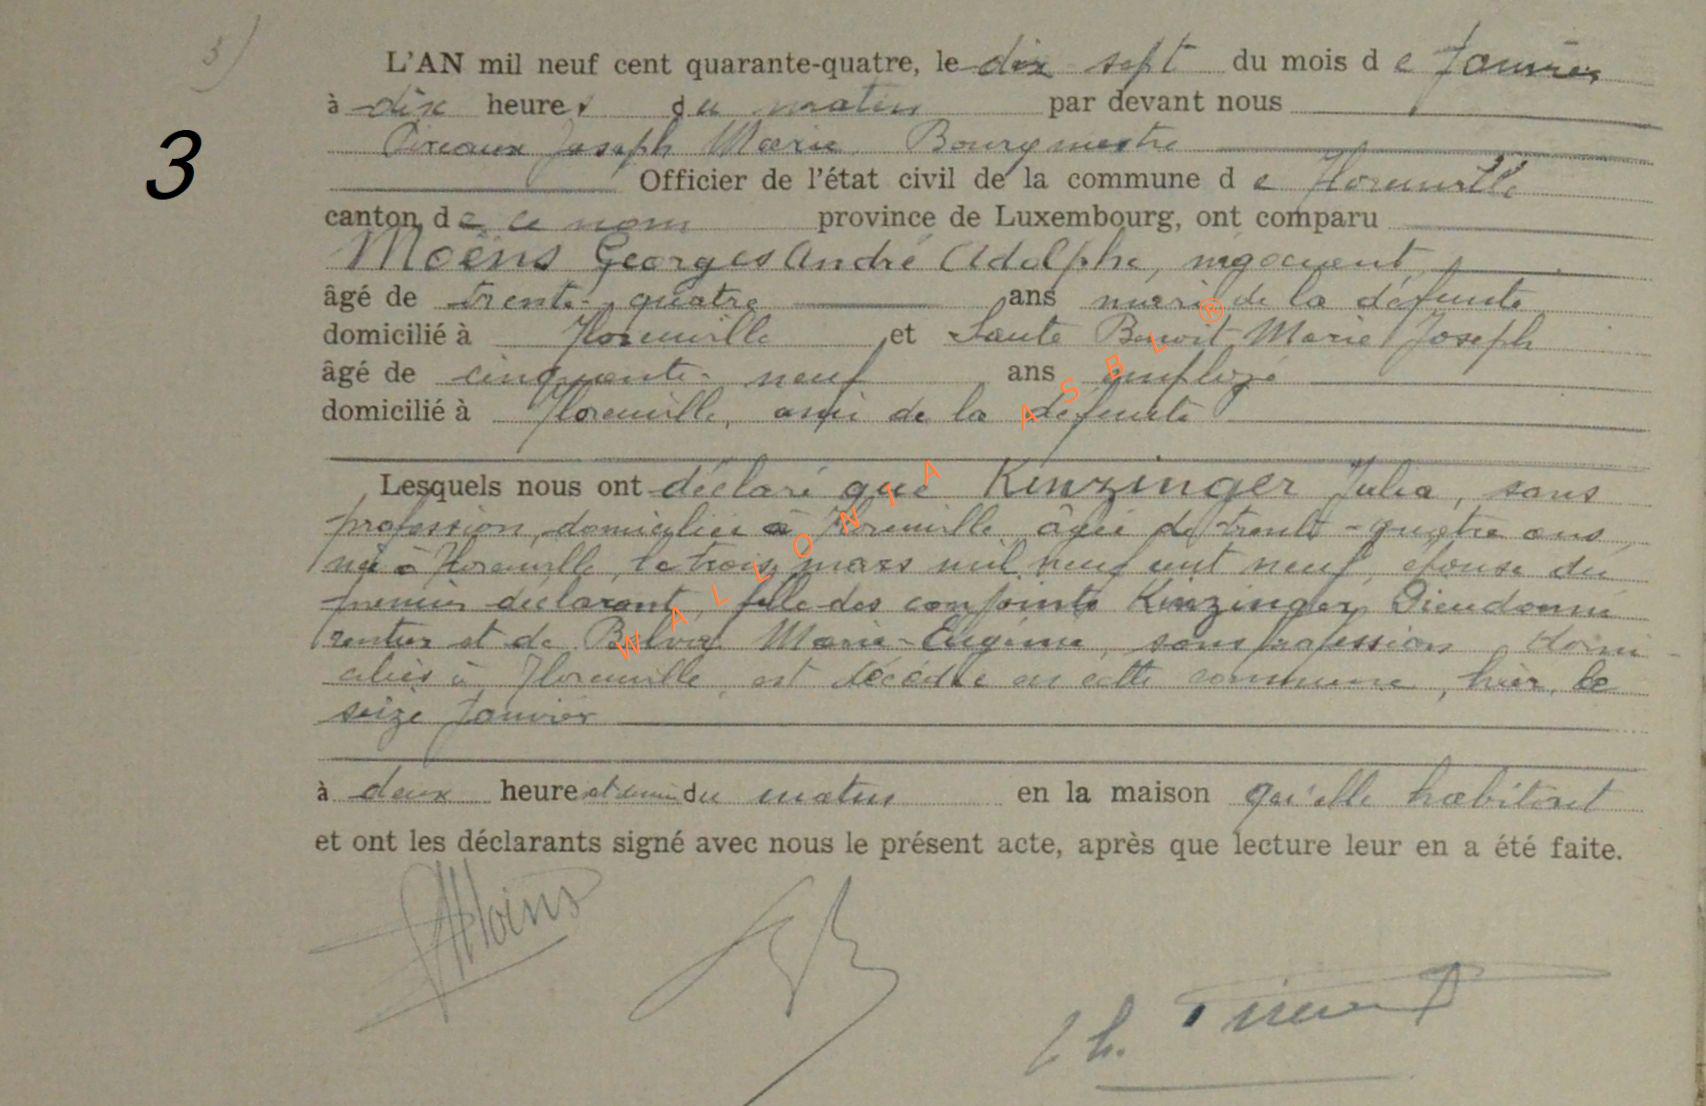 3)
3
L'AN mil neuf cent quarante-quatre, le dix sept du mois de Janvier
à dix heures du matin par devant nous
Pireaux Joseph Marie, Bourgmestre
Officier de l'état civil de la commune de Florenville
canton de ce nom province de Luxembourg, ont comparu
Moëns Georges André Adolphe, négociant
âgé de trente-quatre ans mari de la défunte
domicilié à Florenville et Saute Benoit Marie Joseph
âgé de cinquante-neuf ans employé
domicilié à Florenville, ami de la défunte
Lesquels nous ont déclaré que Kinzinger Julia, sans
profession, domiciliée à Florenville, âgée de trente-quatre ans,
née à Florenville, le trois mars mil neuf cent neuf, épouse du
premier déclarant, fille des conjoints Kinzinger Dieudonné
rentier et de Marie-Eugénie, sans profession domi-
ciliés à Florenville, est décédée en cette commune, hier, le
seize Janvier
à deux heures et demi du matin en la maison qu'elle habitait
et ont les déclarants signé avec nous le présent acte, après que lecture leur en a été faite.
WALLONIA ASBL ®
Moëns